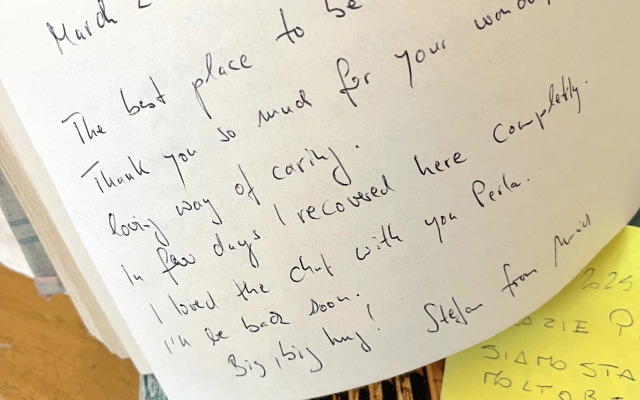 March 2
The best place to be
Thank you so much for your
loving way of caring.
In few days I recovered here completly.
I loved the chat with you Perla.
I'll be back soon.
Big, big hug! Stefan from
2025
ZIE
SIAMO STA
MOLTO B